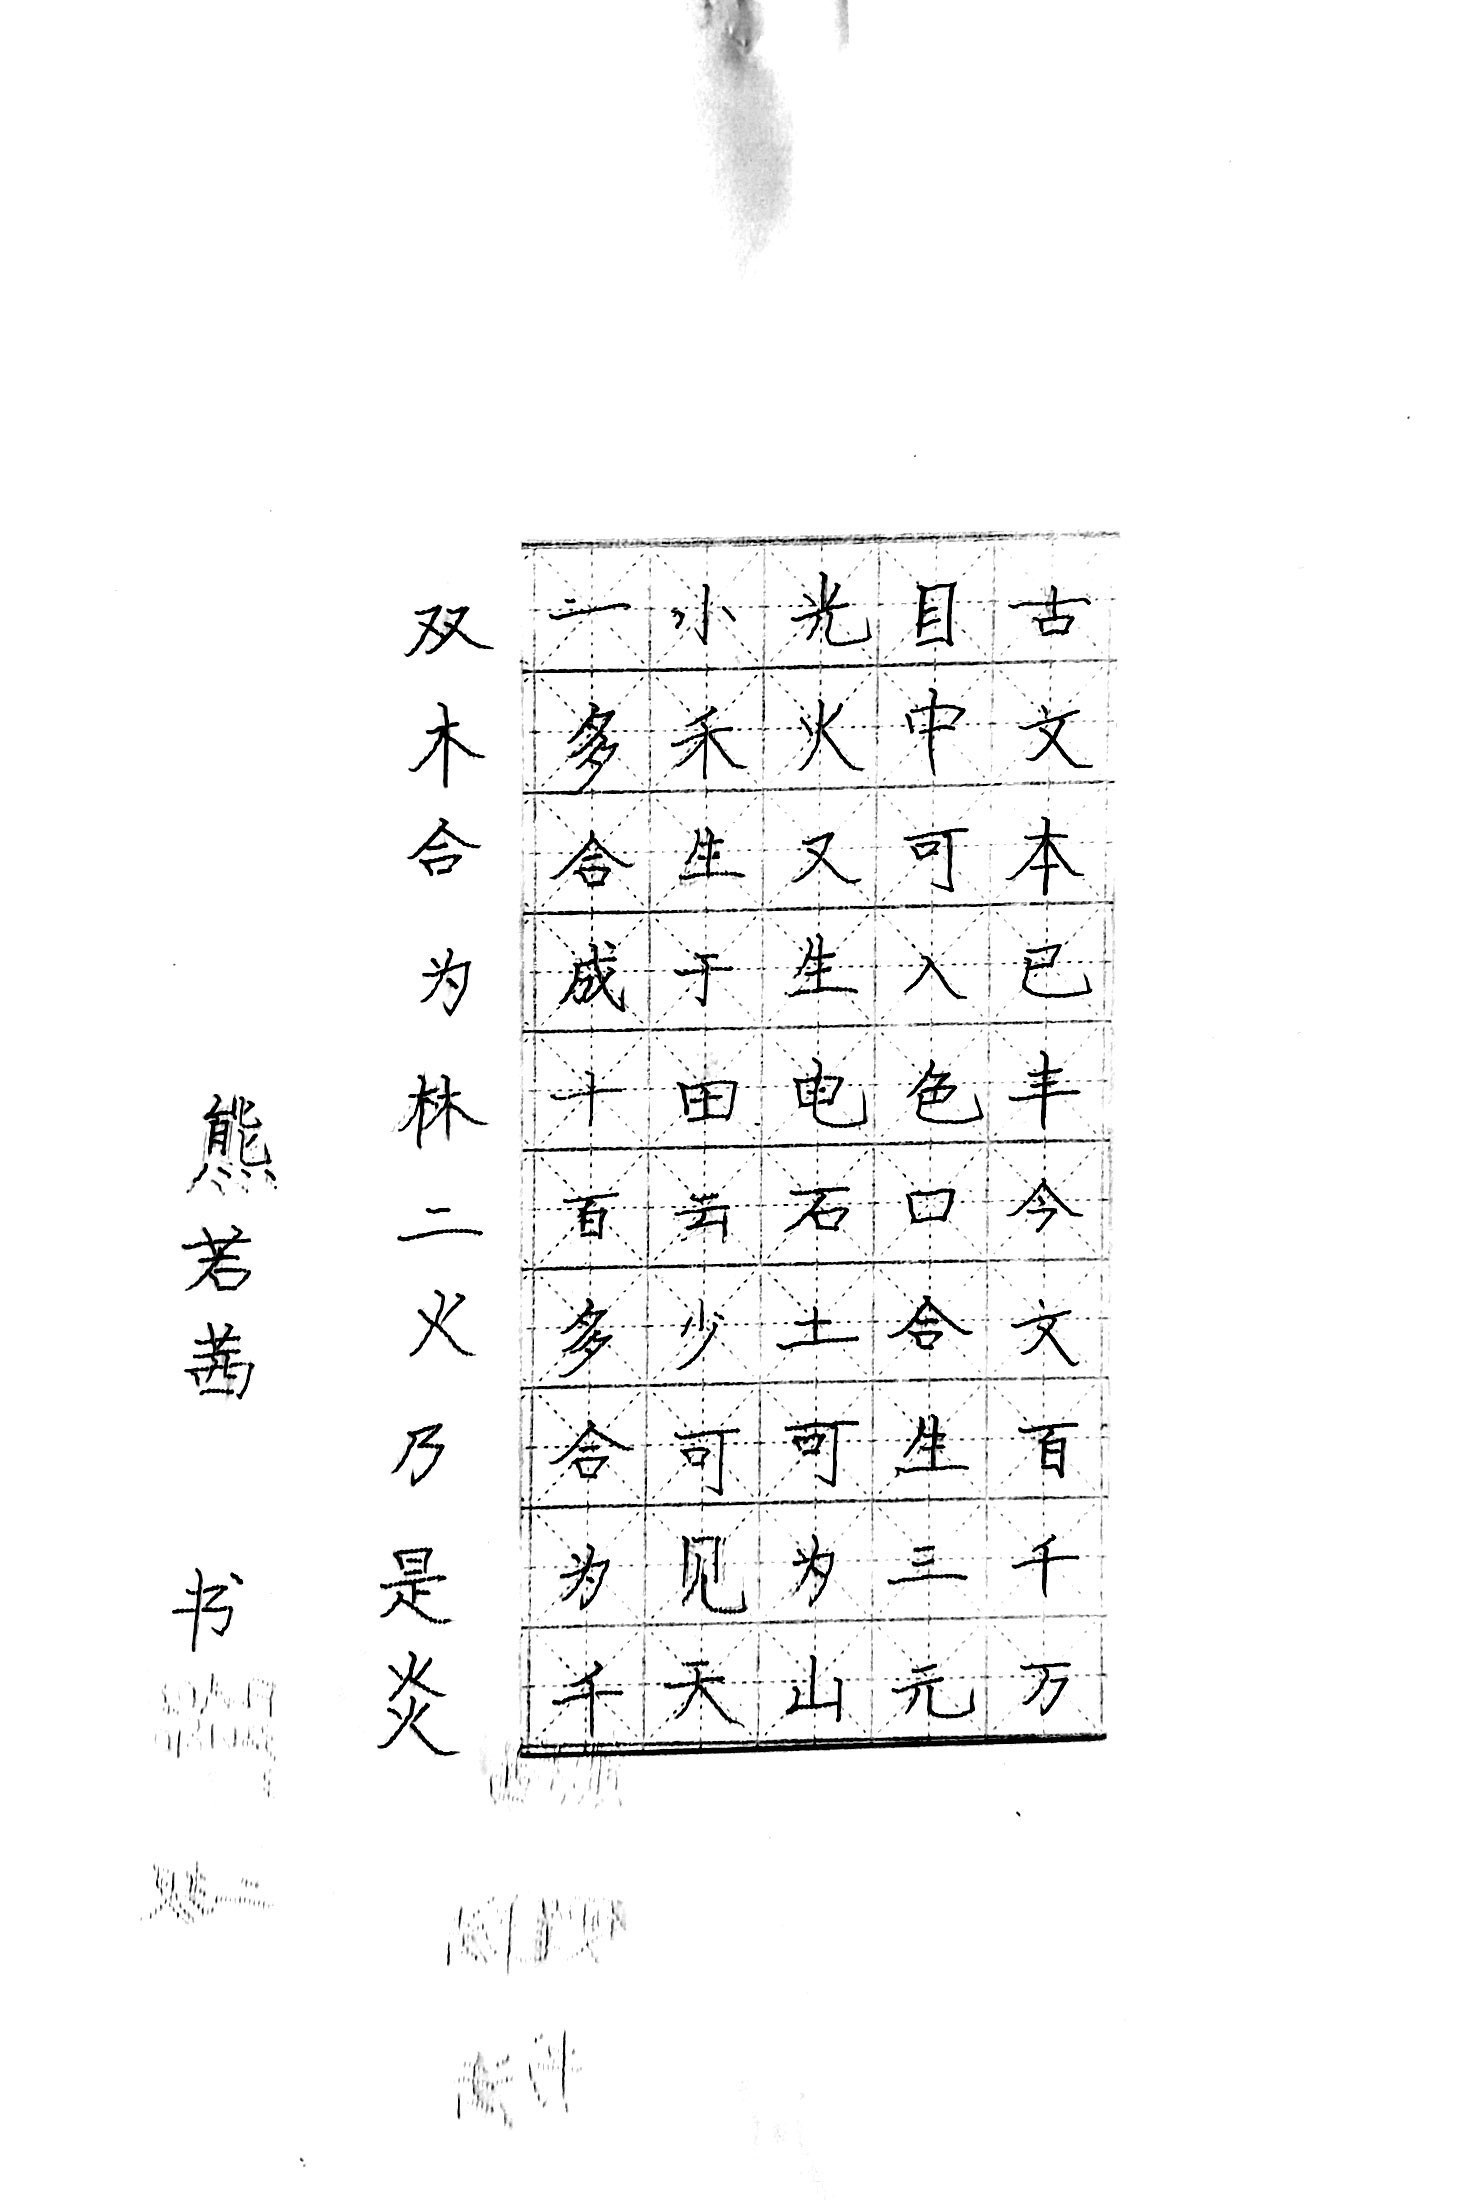 古文本已丰今文百千万
目中可入色口合生三元
光火又生电石土可为山
小禾生于田去少可见天
一多合成十百多合为千
双木合为林二火乃是炎
熊若茜 书